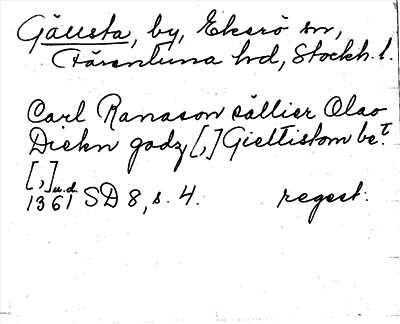 Gällsta, by, Ekerö sn,
Färentuna hd, Stockh. l.
Carl Ranason sällier Olao
Diekn godz [,] Giettistom be.t
[,] u.d.
1361 SD 8, s. 4. regest.